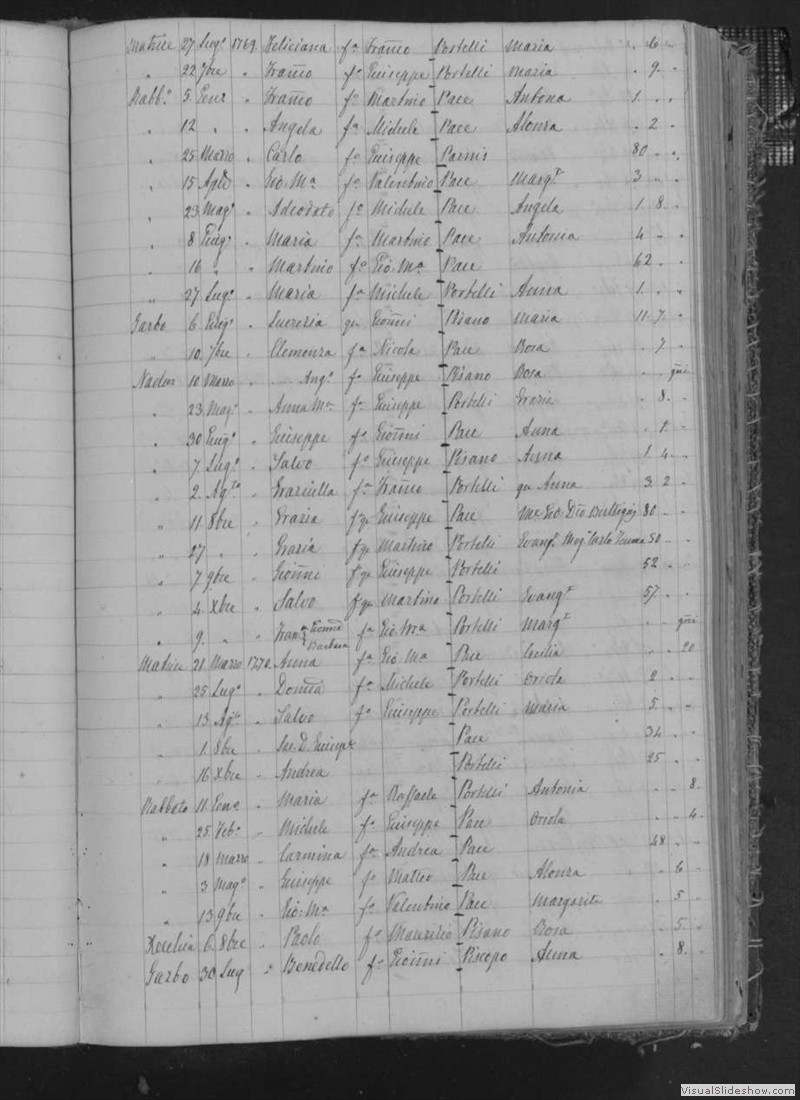 Matrice 27 Lugo 1769 Feliciana fa Franco Portelli Maria . 6 .
" 22 7bre " Franco fo Giuseppe Portelli Maria . 9 .
Rabbo 5 Genr " Franco fo Martino Pace Antona 1 . .
" 12 " " Angela fa Michele Pace Alonza . 2 .
" 25 Marzo " Carlo fo Giuseppe Parnis 80 . .
" 15 Aple " Gio Ma fo Valentino Pace Margta 3 . .
" 23 Mago " Adeodato fo Michele Pace Angela 1 8 .
" 8 Giugo " Maria fa Martino Pace Antonia 4 . .
" 16 " " Martino fo Gio Ma Pace 62 . .
" 27 Lugo " Maria fa Michele Portelli Anna 1 . .
Garbo 6 " Lucrezia qm Gionni Pisano Maria 11 7 .
" 10 7bre " Clemenza fa Nicola Pace Rosa . 7 .
Nadur 10 Marzo " Ango fo Giuseppe Pisano Rosa
" 23 Mago " Anna Ma fa Giuseppe Portelli Grazia . 8 .
" 30 Giugo " Giuseppe fo Gionni Pace Anna . 1 .
" 7 Lugo " Salvo fo Giuseppe Pisano Anna 1 4 .
" 2 Agto " Graziulla fa Franco Portelli qm Anna 3 2 .
" 11 8bre " Grazia Giuseppe Pace Gio 80 . .
" 27 " " Grazia Martino Portelli Carlo 50 . .
" 7 9bre " Gionni Giuseppe Portelli 52 . .
" 4 Xbre " Salvo Martino Portelli Evangta 57 . .
" 9 " " Barbara fa Gio Ma Portelli Margta
Matrice 21 Marzo 1770 Anna fa Gio Ma Pace Cecilia . . 20
" 25 Lugo " fa Michele Portelli Oriola 2 . .
" 13 Agto " Salvo fo Giuseppe Portelli Maria 5 . .
" 1 8bre " D. Giuseppe Pace 34 . .
" 16 Xbre " Andrea Portelli 25 . .
Rabbato 11 Geno " Maria fa Raffaele Portelli Antonia . . 8
" 25 Febo " Michele fo Giuseppe Pace Oriola . . 4
" 18 Marzo " Carmina fa Andrea Pace 48 . .
" 3 Mago " Giuseppe fo Matteo Pace Alonza . 6 .
" 13 9bre " Gio Ma fo Valentino Pace Margarita . 5 .
6 8bre " Paolo fo Maurizio Pisano Rosa . 5 .
Garbo 30 Lug " Benedetto fo Gionni Piscopo Anna . 8 .
VisualSlideshow.com